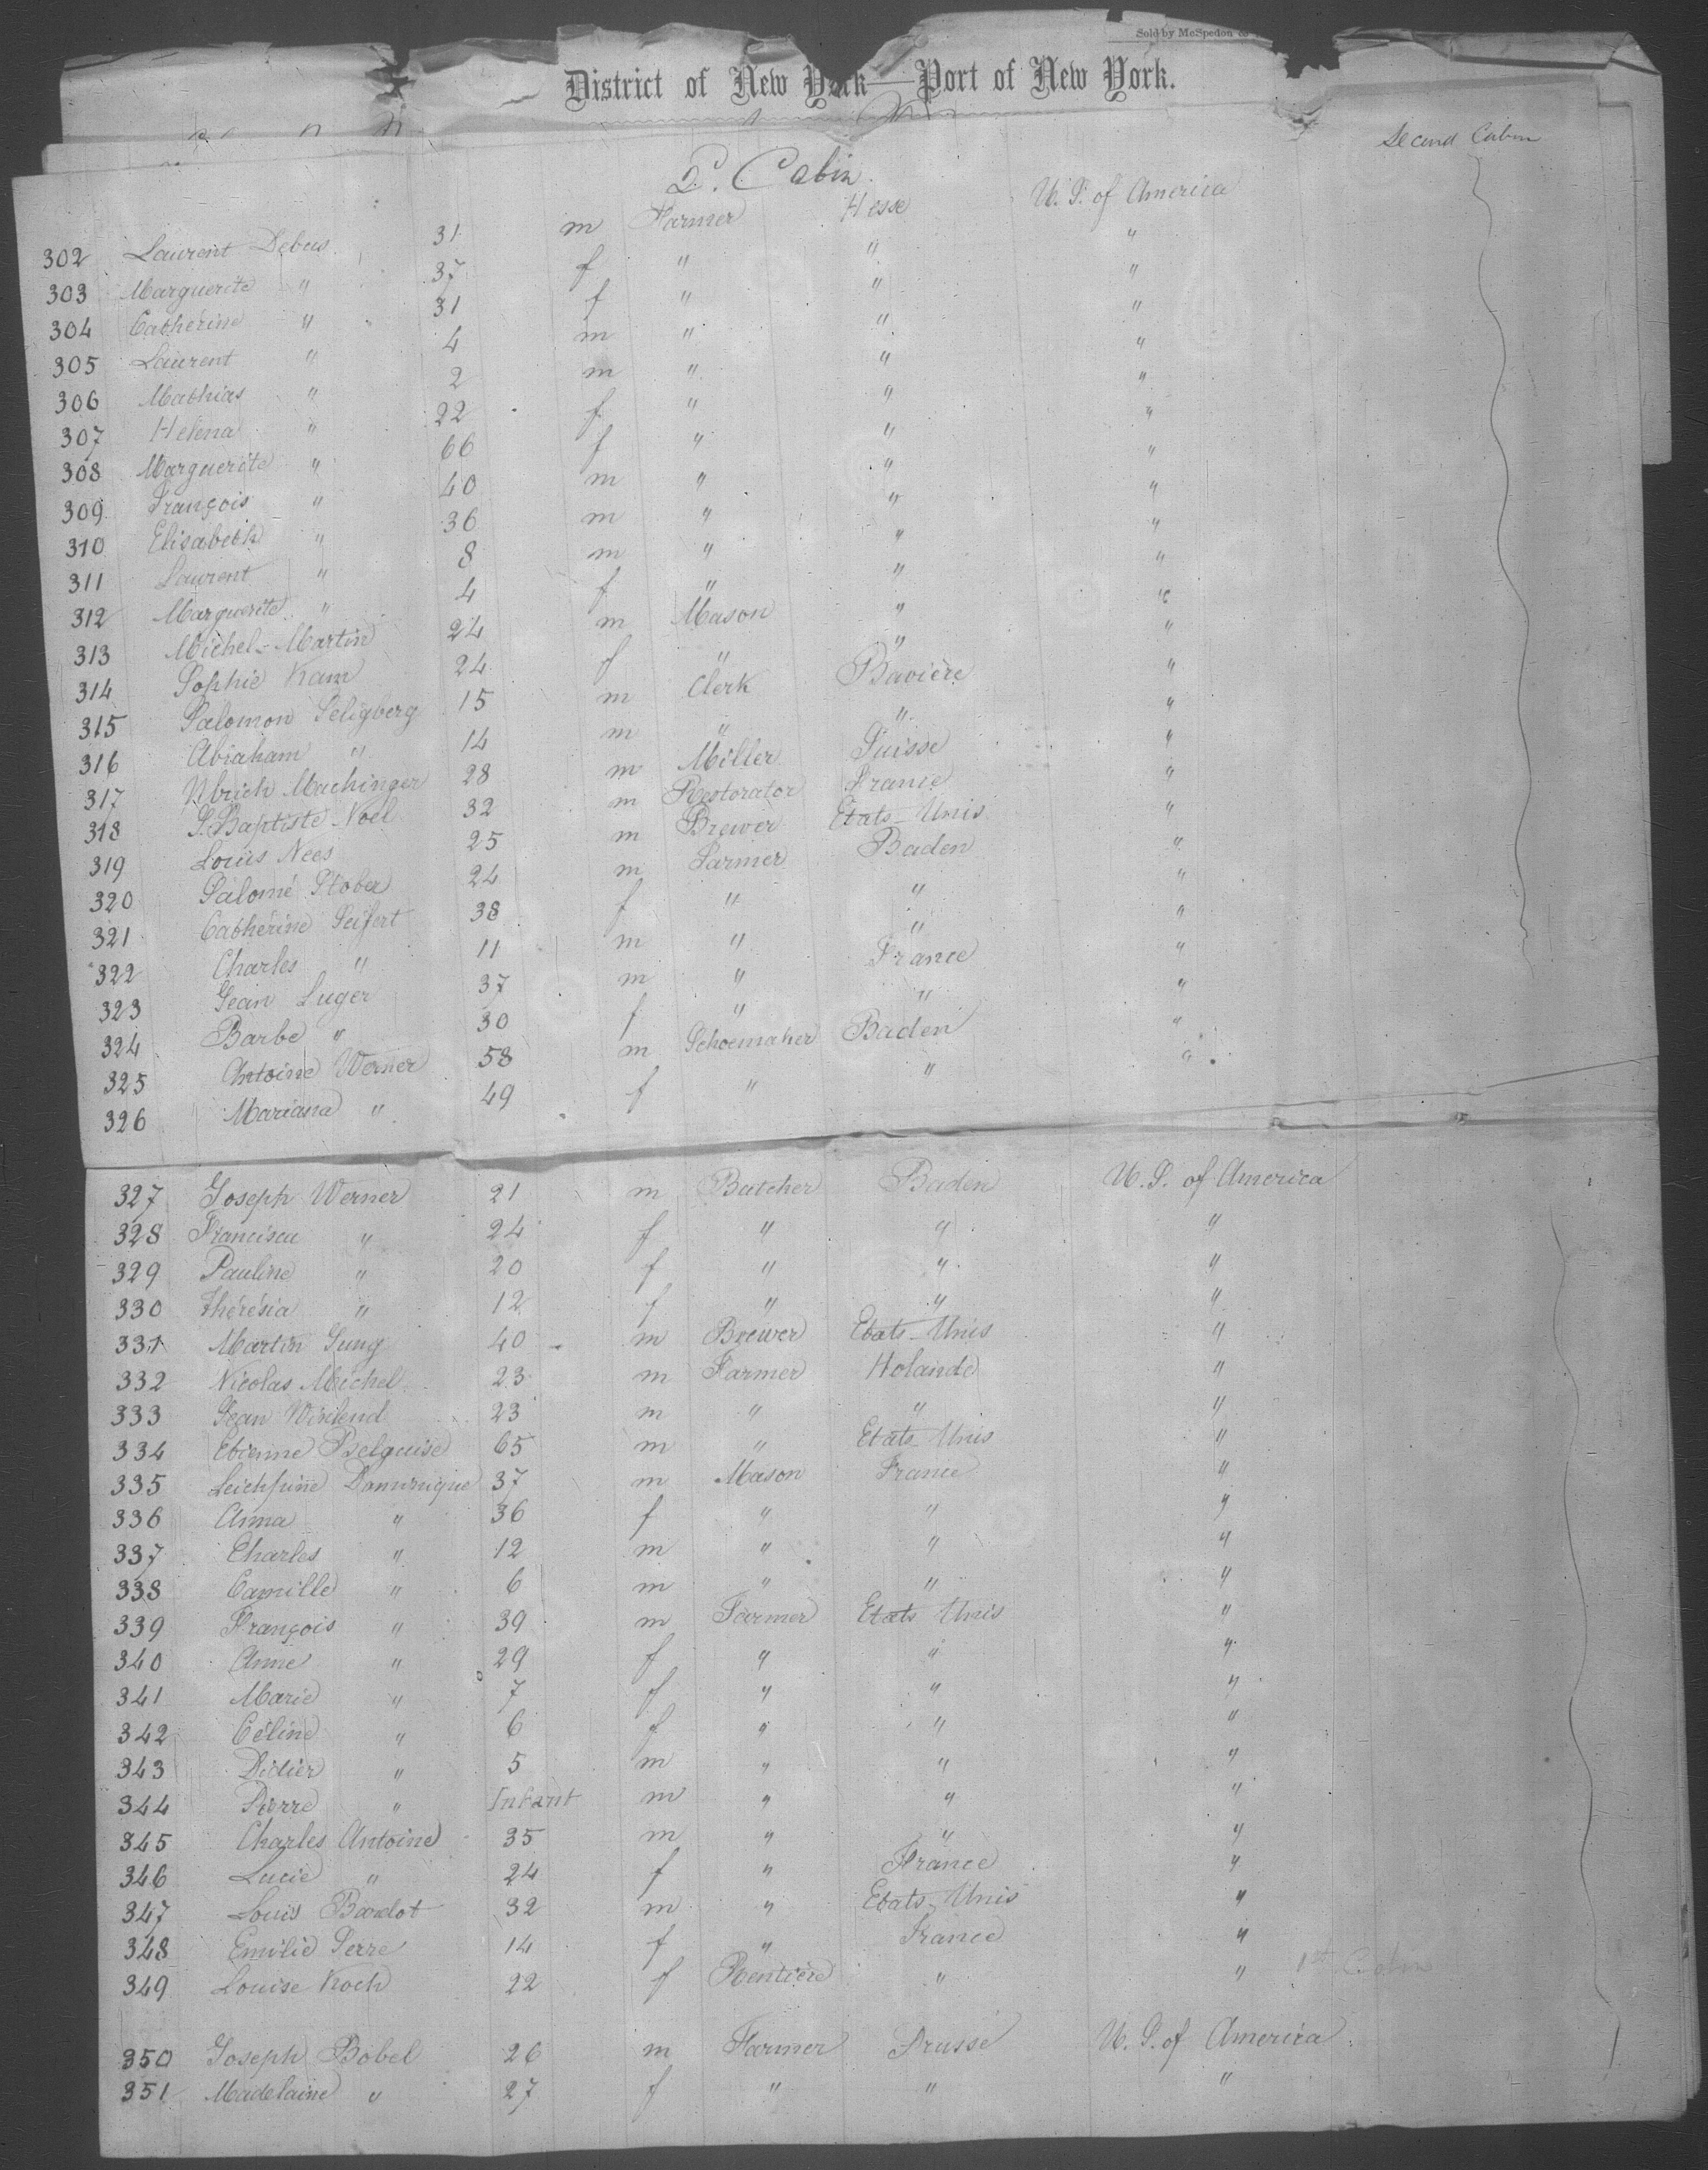 Sold by McSpedon &
District of New York—Port of New York.
2. Cabin
Second Cabin
302 Laurent Debus 31 m Farmer Hesse U. S. of America
303 Marguerite " 37 f " " "
304 Catherine " 31 f " " "
305 Laurent " 4 m " " "
306 Mathias " 2 m " " "
307 Helena " 22 f " " "
308 Marguerite " 66 f " " "
309 François " 40 m " " "
310 Elisabeth " 36 m " " "
311 Laurent " 8 m " " "
312 Marguerite " 4 f " " "
313 Michel-Martin 24 m Mason " "
314 Sophie Kam 24 f " " "
315 Salomon Seligberg 15 m Clerk Bavière "
316 Abraham " 14 m " " "
317 Ulrich Machinger 28 m Miller Suisse "
318 J. Baptiste Noel 32 m Restorator France "
319 Louis Nees 25 m Brewer Etats-Unis "
320 Salomé Stober 24 m Farmer Baden "
321 Catherine Seifert 38 f " " "
322 Charles " 11 m " " "
323 Jean Luger 37 m " France "
324 Barbe " 30 f " " "
325 Antoine Werner 58 m Schoemaker Baden "
326 Mariana " 49 f " " "
327 Joseph Werner 21 m Butcher Baden U. S. of America
328 Francisca " 24 f " " "
329 Pauline " 20 f " " "
330 Thérésia " 12 f " " "
331 Martin Jung 40 m Brewer Etats-Unis "
332 Nicolas Michel 23 m Farmer Holande "
333 Jean 23 m " " "
334 Etienne 65 m " Etats-Unis "
335 37 m Mason France "
336 Anna " 36 f " " "
337 Charles " 12 m " " "
338 Camille " 6 m " " "
339 François " 39 m Farmer Etats-Unis "
340 Anne " 29 f " " "
341 Marie " 7 f " " "
342 Céline " 6 f " " "
343 Didier " 5 m " " "
344 Pierre " Infant m " " "
345 Charles Antoine 35 m " " "
346 Lucie " 24 f " France "
347 Louis Bardot 32 m " Etats-Unis "
348 Emilie Serre 14 f " France "
349 Louise Koch 22 f Rentière " " 1st Cabin
350 Joseph Bobel 26 m Farmer Prusse U. S. of America
351 Madelaine " 27 f " " "